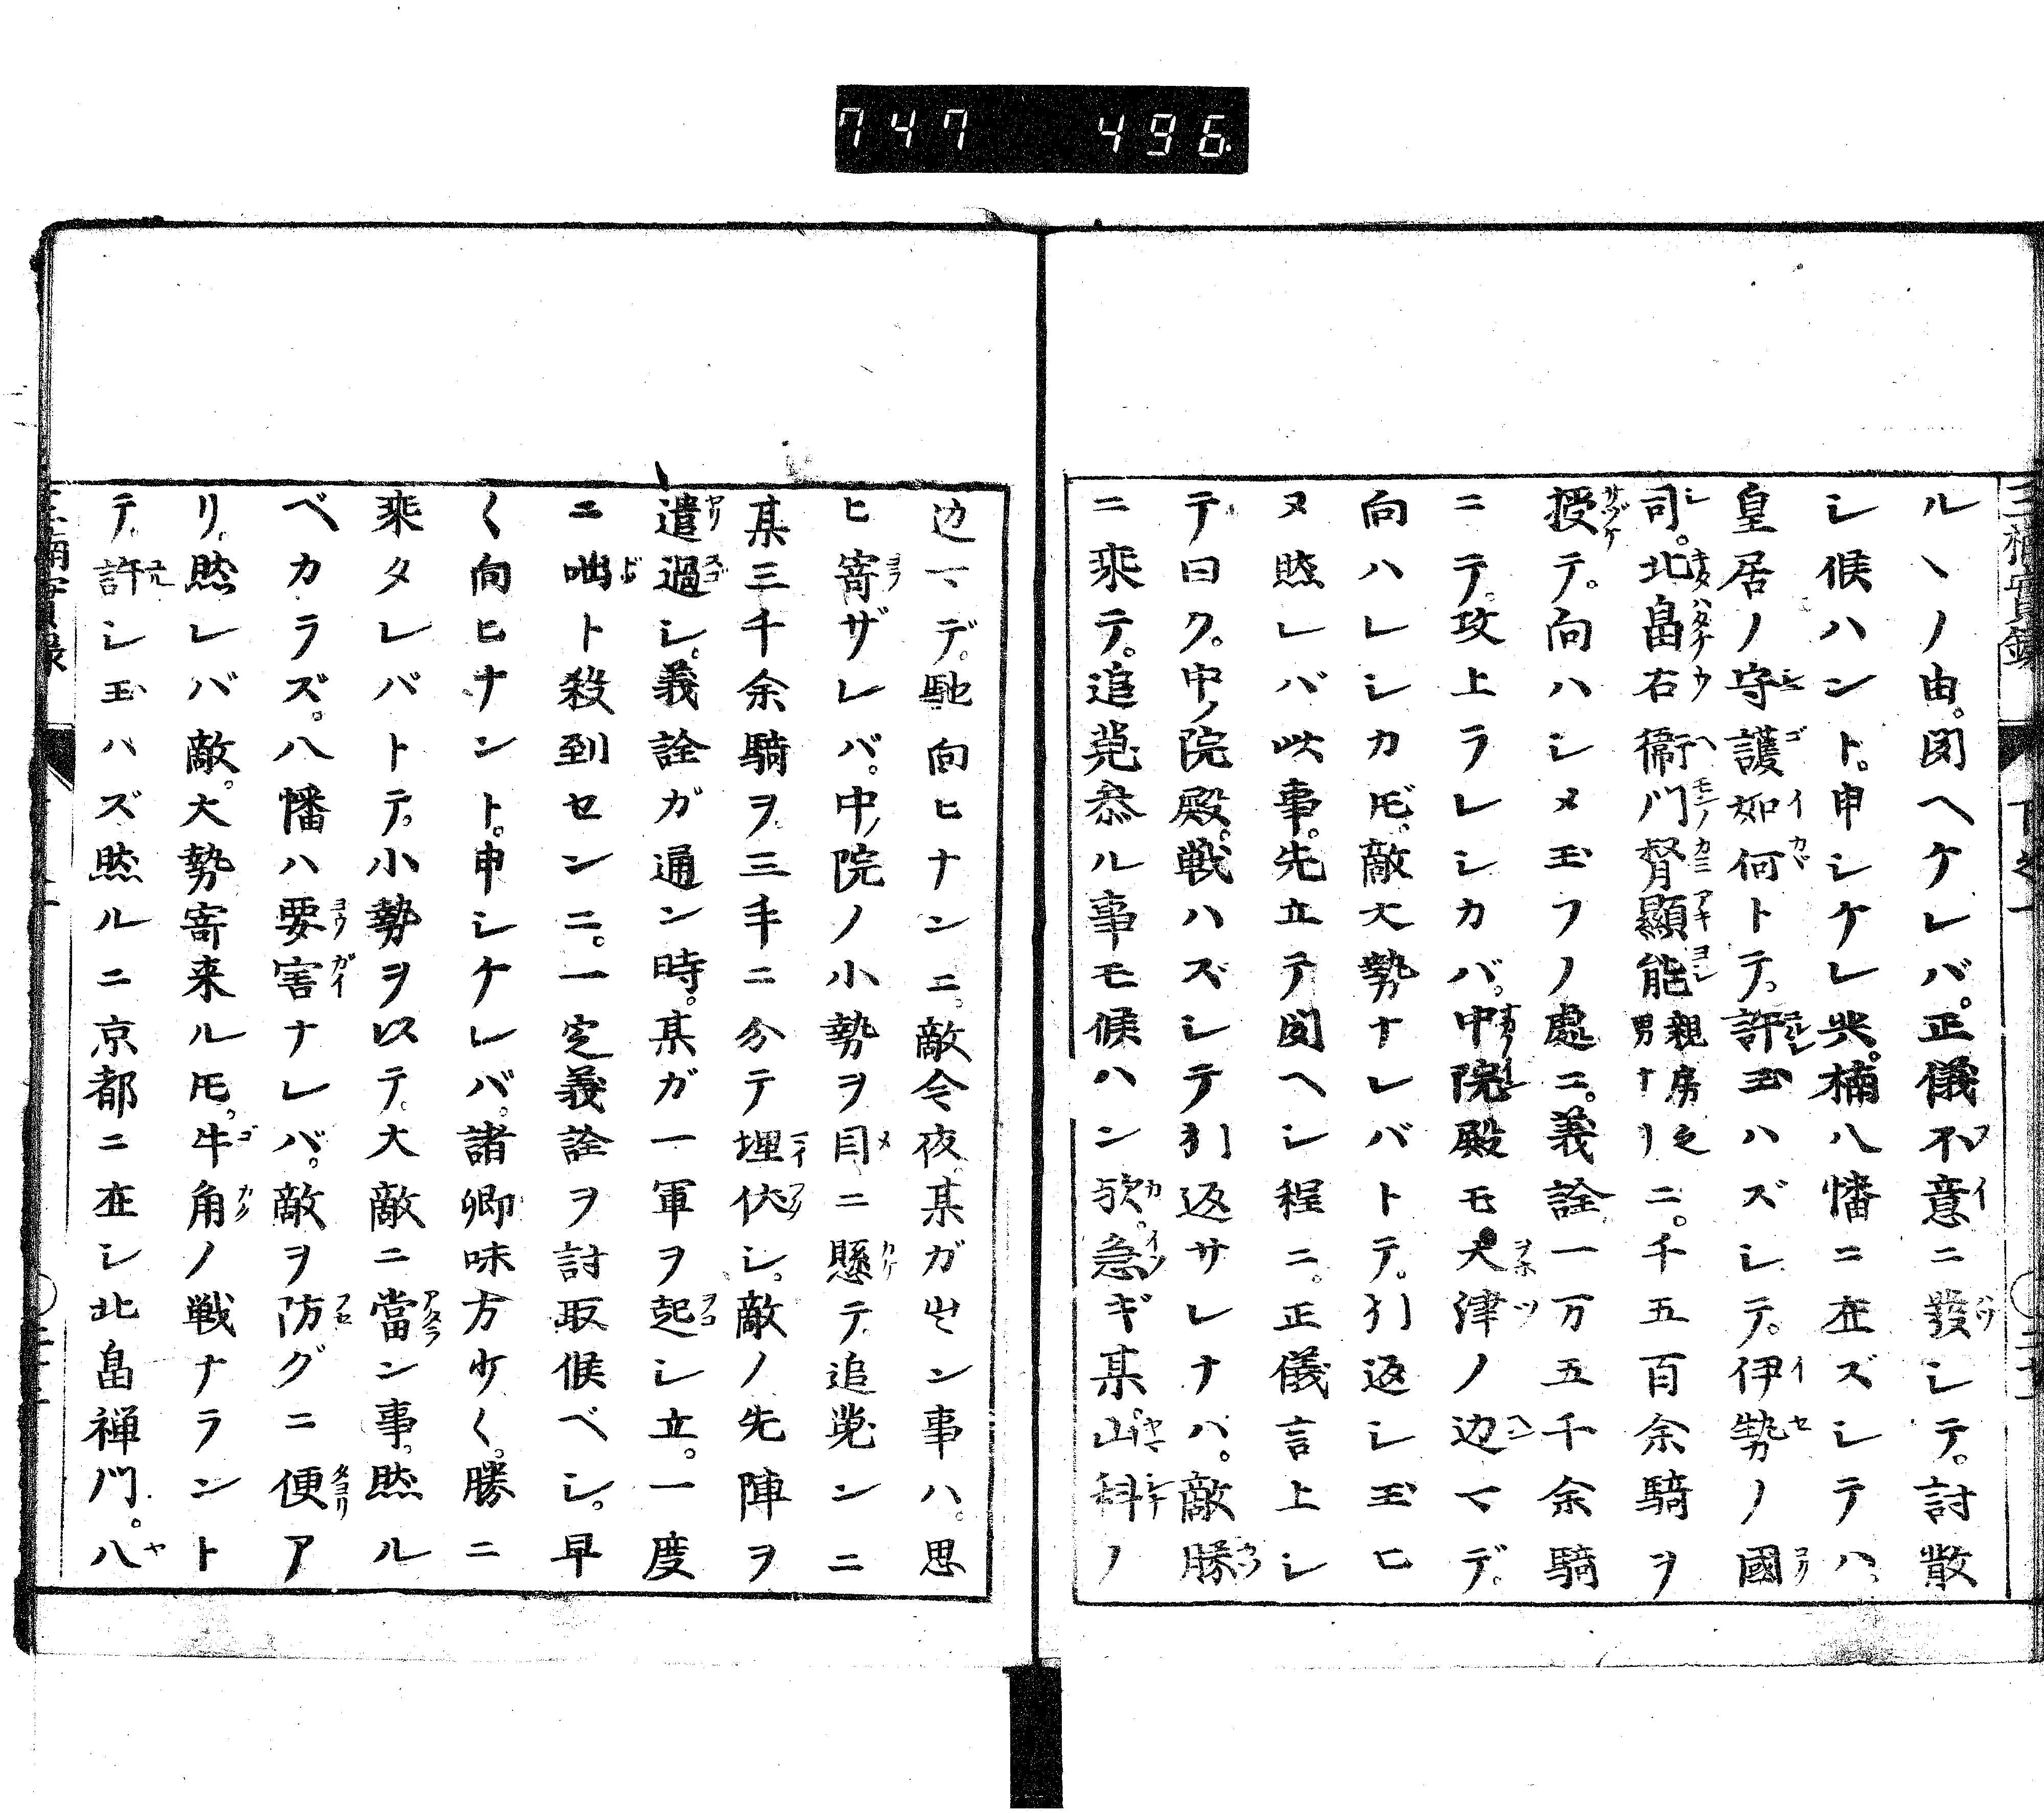 747 496
ルヽノ由。図ヘケレバ。正儀不意ニ發シテ。討散
シ候ハント。申シケレ𪜈。楠八幡ニ在ズシテハ。
皇居ノ守護如何トテ。許玉ハズシテ。伊勢ノ國
司。北畠右衞門督顯能親房之男ナリニ。千五百余騎ヲ
授テ。向ハシメ玉フノ處ニ。義詮一万五千余騎
ニテ。攻上ラレシカバ。中院殿モ大津ノ辺マデ。
向ハレシカ𪜈。敵大勢ナレバトテ。引返シ玉ヒ
ヌ然レバ此事。先立テ図ヘシ程ニ。正儀言上シ
テ曰ク。中ノ院殿。戦ハズシテ引返サレナハ。敵勝
ニ乘テ。追菟参ル事モ候ハン欤。急ギ某山科ノ
辺マデ。馳向ヒナンニ。敵今夜某ガ出ン事ハ。思
ヒ寄ザレバ。中ノ院ノ小勢ヲ目ニ懸テ追菟ンニ
某三千余騎ヲ。三手ニ分テ埋伏シ。敵ノ先陣ヲ
遣過シ。義詮ガ通ン時。某ガ一軍ヲ起シ立。一度
ニ咄ト殺到センニ。一定義詮ヲ討取候ベシ。早
く向ヒナント。申シケレバ。諸卿味方少く。勝ニ
乘タレバトテ。小勢ヲ以テ。大敵ニ當ン事。然ル
ベカラズ。八幡ハ要害ナレバ。敵ヲ防グニ便ア
リ。然レバ敵。大勢寄来ル𪜈。牛角ノ戦ナラント
テ。許シ玉ハズ然ルニ京都ニ在シ北畠禅門。八